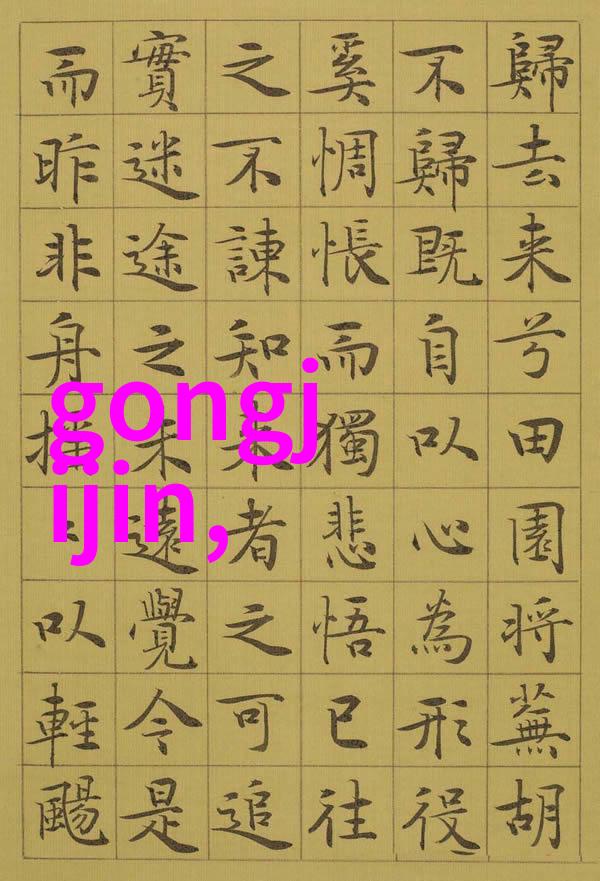 歸去来兮田園将蕪胡
不歸既自以心為形役
奚惆悵而獨悲悟已往
之不諫知来者之可追
實迷途之未遠覺今是
而昨非舟以輕颺
gongj
ijin,